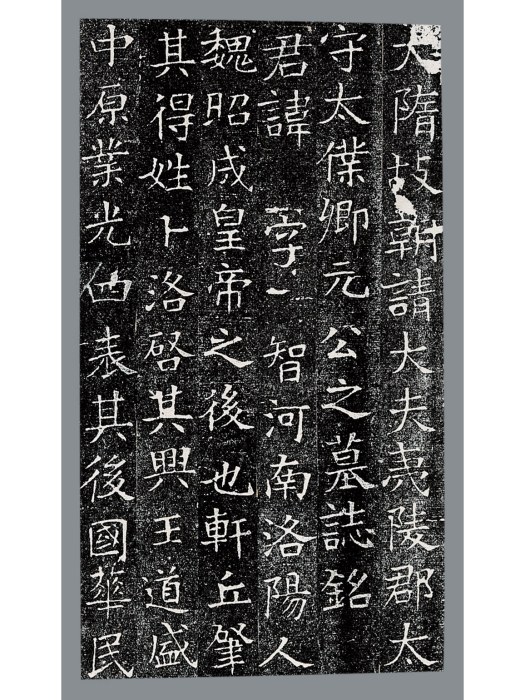 大隋故朝請大夫夷陵郡太
守太僕卿元公之墓誌銘
君諱 字 智河南洛陽人
魏昭成皇帝之後也軒丘肇
其得姓卜洛啓其興王道盛
中原業光四表其後國華民